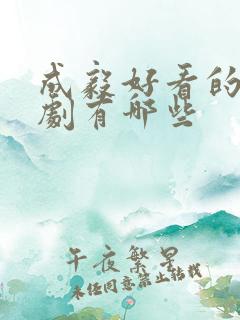 成毅好看的
劇有哪些
午夜繁星
未经同意禁止转载